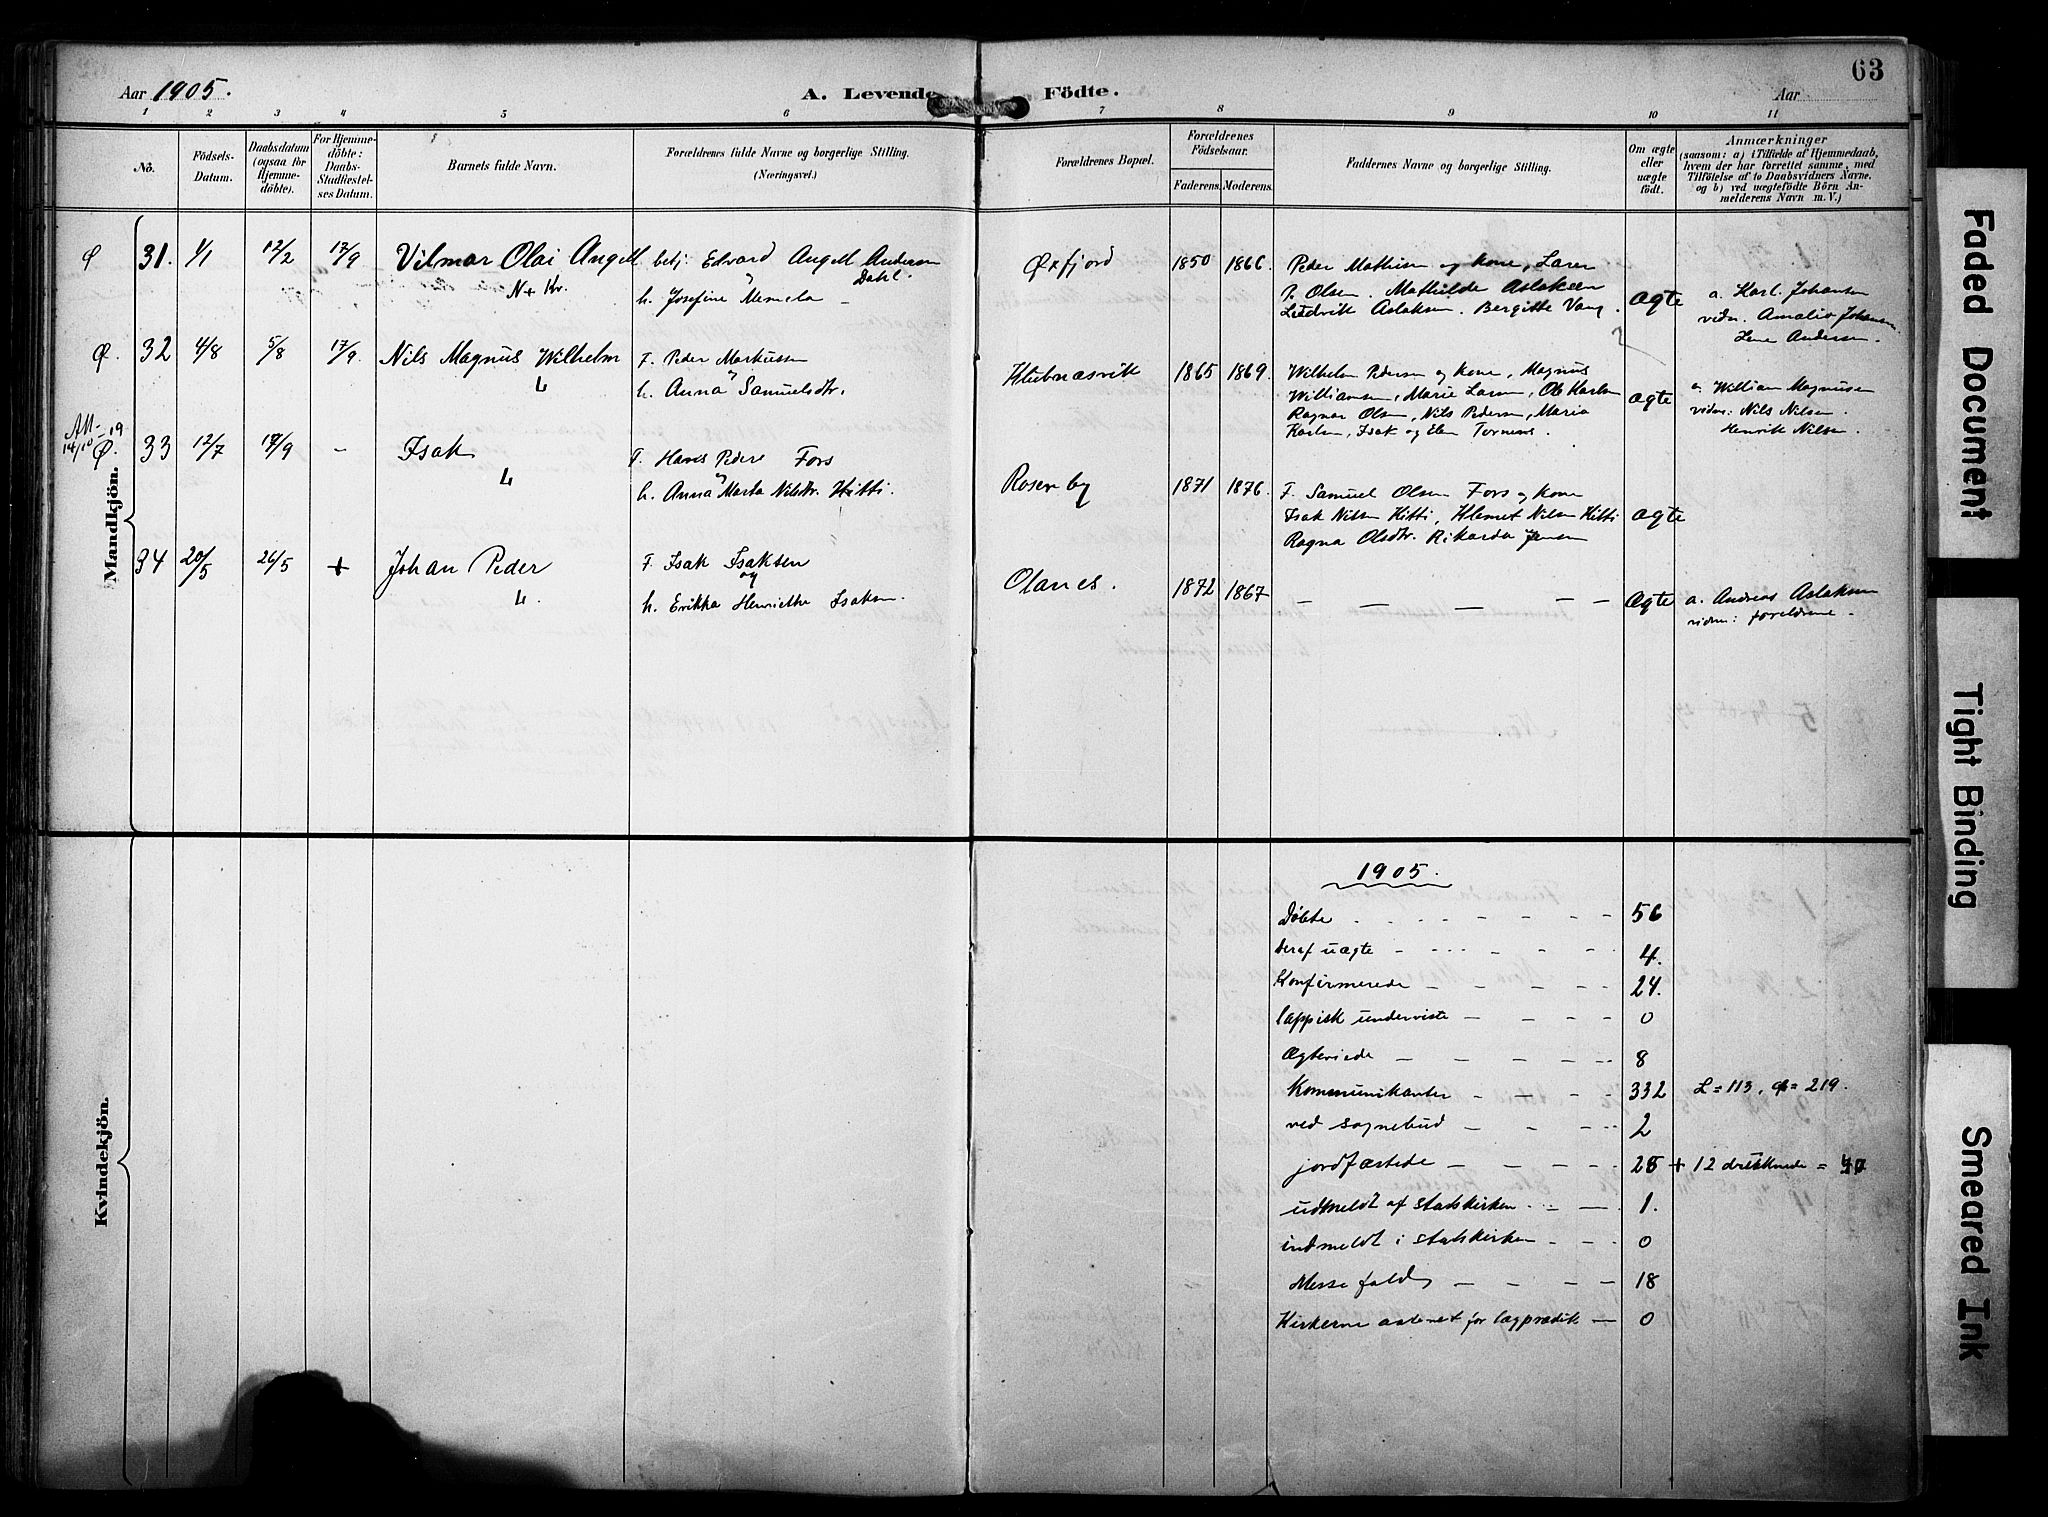 63
Aar 1905.
A. Levende Födte.
Aar
1 2 3 4 5 6 7 8 9 10 11
No.
Födsels-Datum.
Daabsdatum (ogsaa for Hjemme-döbte).
For Hjemme-döbte: Daabs-Stadfæstelses Datum.
Barnets fulde Navn.
Forældrenes fulde Navne og borgerlige Stilling.
(Næringsvei.)
Forældrenes Bopæl.
Forældrenes Födselsaar.
Faderens. Moderens.
Faddernes Navne og borgerlige Stilling.
Om ægte eller uægte født.
Anmærkninger
(saasom: a) i Tilfælde af Hjemmedaab,
hvem der har forrettet samme, med
Tilföielse af to Daabsvidners Navne,
og b) ved uægtefödte Börn An-
melderens Navn m. V.)
Mandkjön.
Ø 31. 1/1 12/2 17/9 Vilmar Olai Angell
N + Kv.
betj. Edvard Angell Andersen Dahl.
h. Josefine
Øxfjord 1850 1866
Peder Mathisen og kone, Laren
P. Olsen. Mathilde Aslaksen
Ludvik Aslaksen. Bergitte Vang.
ægte
a. Karl Johansen
vidn. Amalie Johansen
Lene Andersen.
Ø. 32 4/8 5/8 17/9. Nils Magnus Wilhelm
L
F. Peder Markussen
og
h. Anna Samuelsdtr.
Klubnæsvik 1865 1869
Wilhelm Pedersen og kone, Magnus
Williamsen, Marie Larsen, Ole Karlsen
Ragnar Olsen, Nils Pedersen, Maria
Karlsen, Isak og Elen Tornensis.
ægte
a. William Magnusen
vidn: Nils Nilsen.
Henrik Nilsen.
Att- 19
14/10
Ø. 33 12/7 17/9 - Isak
L
F. Hans Pedersen Fors
og
h. Anna Marta Nilsdtr. Hitti.
Rosenby 1871 1876
F. Samuel Olsen Fors og kone
Isak Nilsen Hitti, Klemet Nilsen Hitti
Ragna Olsdtr. Rikarda Jensen
ægte
34 20/5 26/5 + Johan Peder
L.
F. Isak Isaksen
og
h. Erikka Henriette Isaksen.
Olanes. 1872 1867
— — — — —
ægte
a. Andreas Aslaksen
vidn: foreldrene.
Kvindekjön.
1905.
Døbte 56
Deraf uægte 4.
Konfirmerede 24.
lappisk underviste 0
Ægteviede 8
Kommunikanter 332 L = 113, q = 219.
ved sognebud 2
jordfæstede 28 + 12 druknede = 40
udmeldt af statskirken 1.
indmeldt i statskirken 0
Messefald 18
Kirkerne aabnet for lægprædik 0
Faded Document
Tight Binding
Smeared Ink